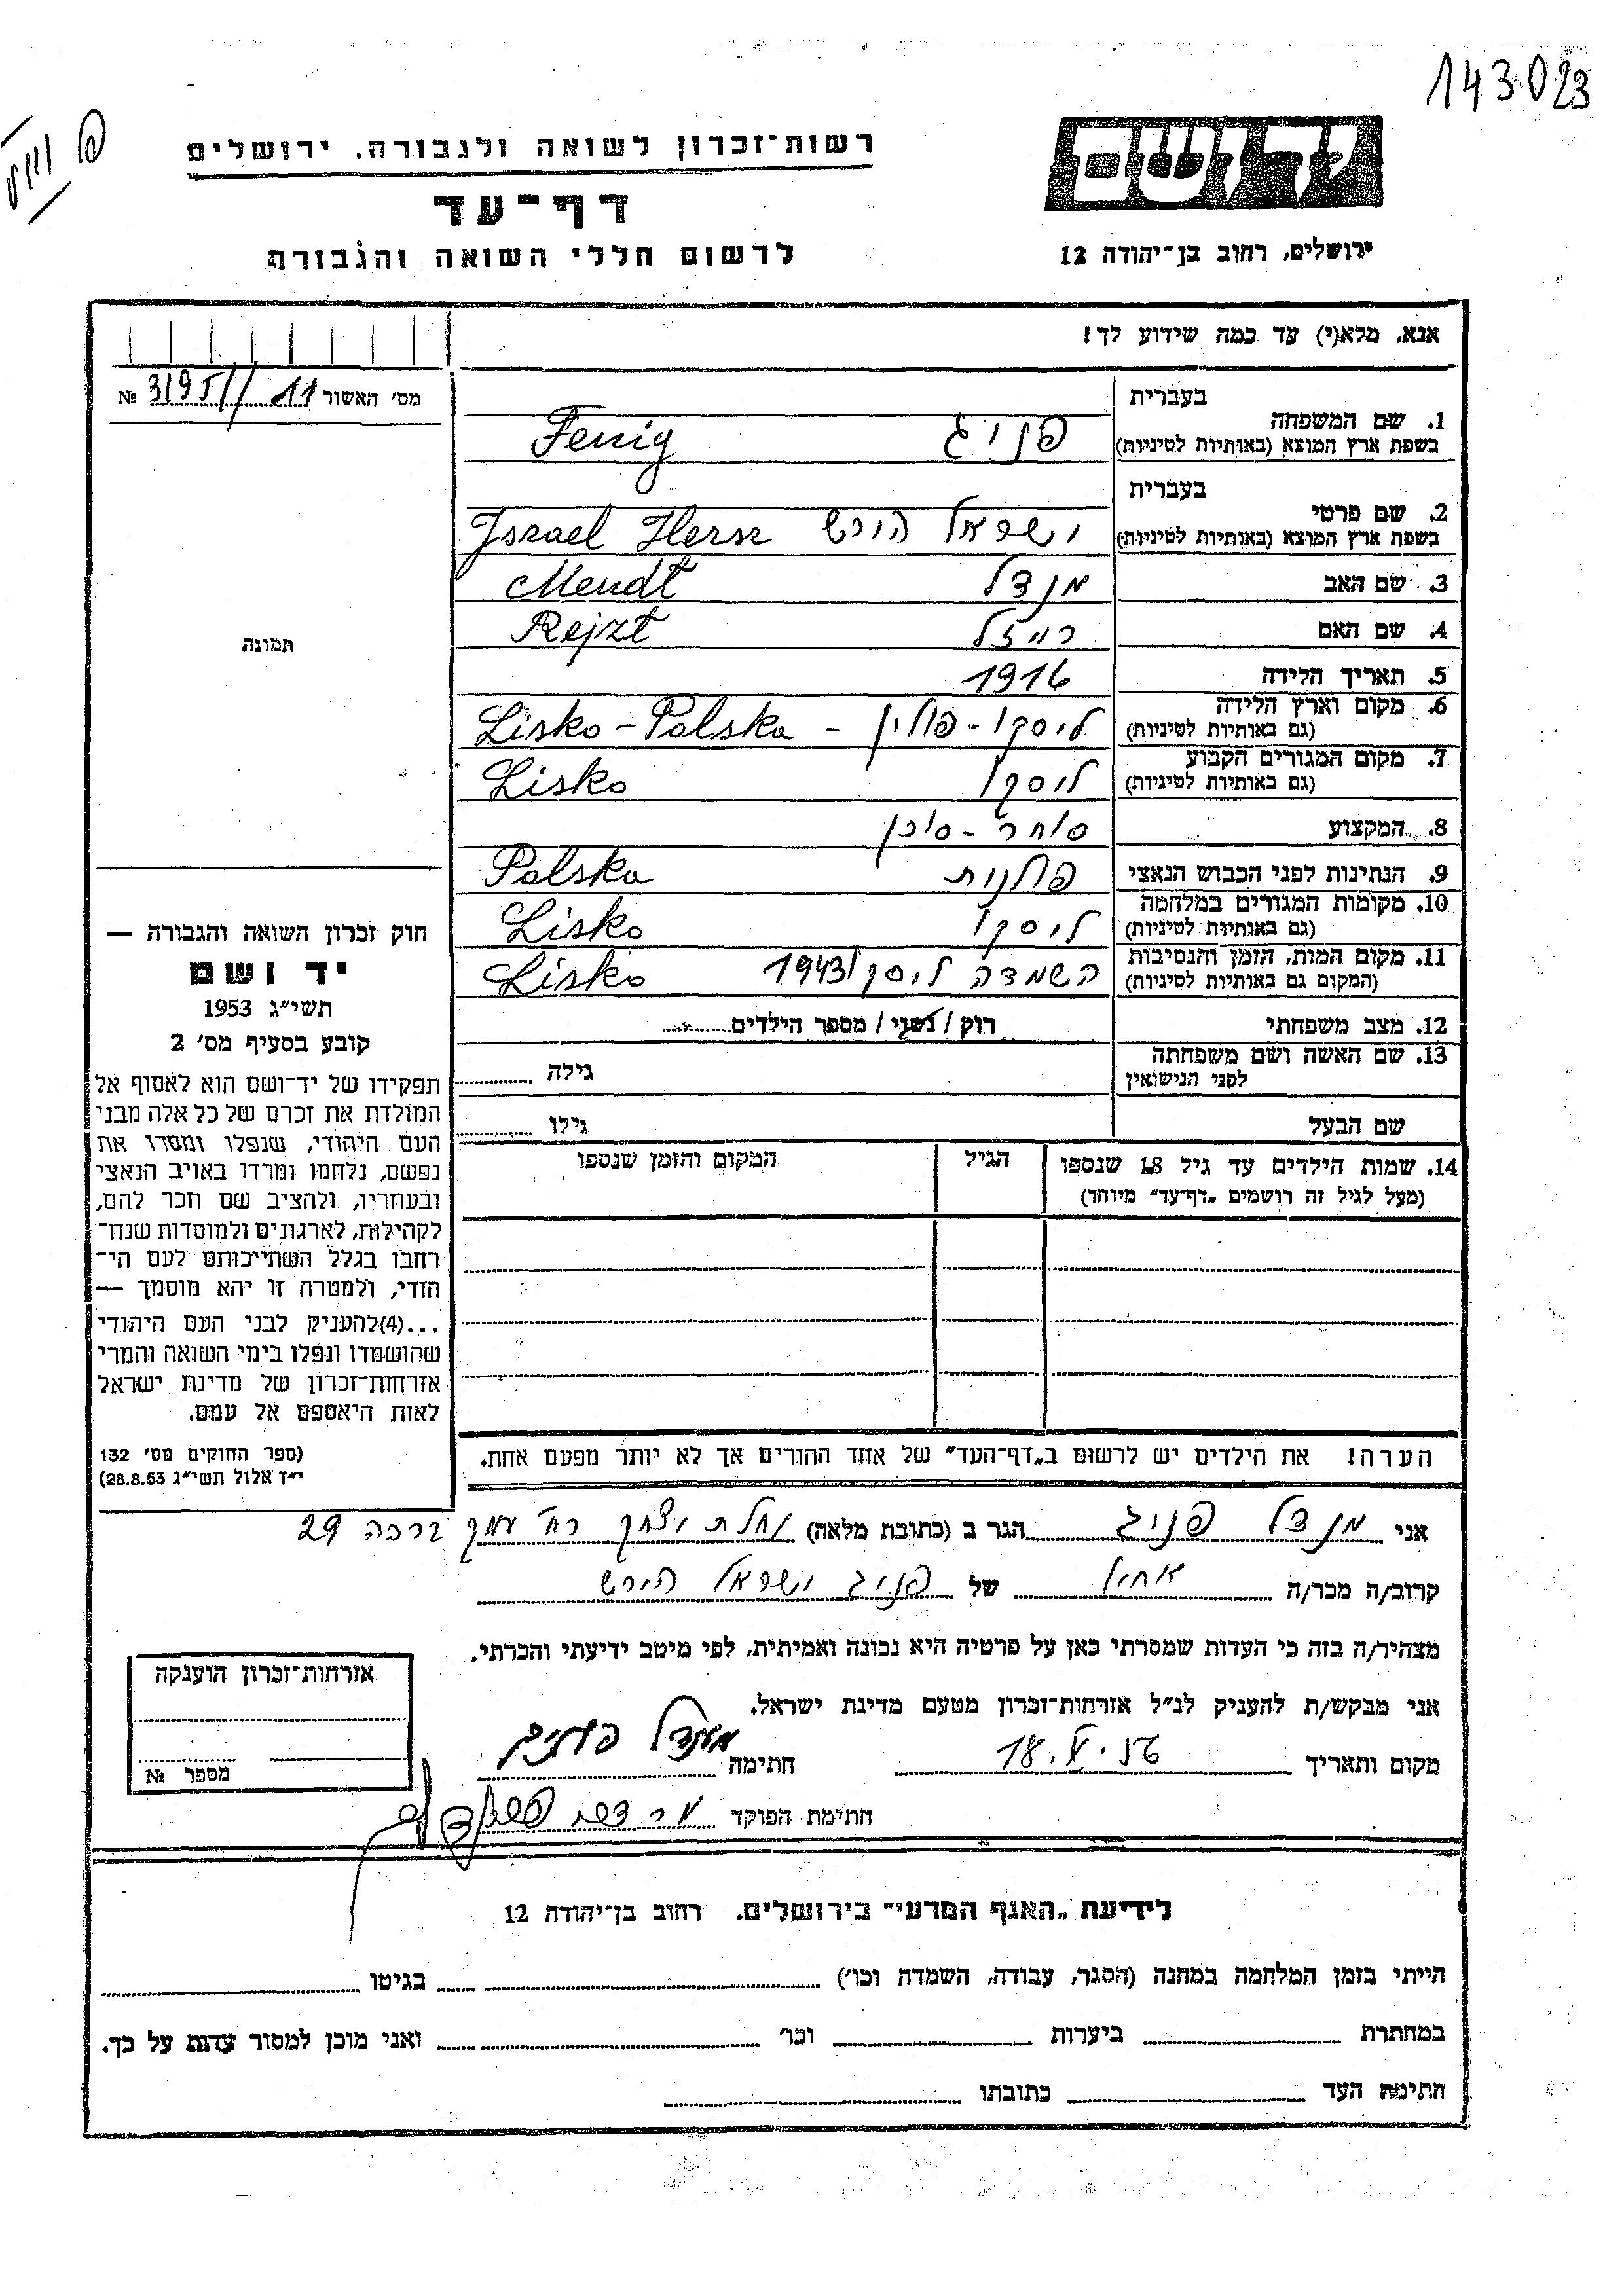 143023
רשות־זכרון לשואה ולגבורה, ירושלים
דף־עד
לרשום חללי השואה והגבורה
יד ושם
ירושלים, רחוב בן־יהודה 12
אנא, מלא(י) עד כמה שידוע לך!
מס׳ האשור 11 //3195 №
בעברית
1. שם המשפחה
בשפת ארץ המוצא (באותיות לטיניות)
פניג Fenig
בעברית
2. שם פרטי
בשפת ארץ המוצא (באותיות לטיניות)
ישראל הירש Israel Hersz
3. שם האב מנדל Mendl
4. שם האם רייזל Rejzl
5. תאריך הלידה 1916
6. מקום וארץ הלידה
(גם באותיות לטיניות)
ליסקו - פולין - Lisko - Polska
7. מקום המגורים הקבוע
(גם באותיות לטיניות)
ליסקו Lisko
8. המקצוע סוחר - סוכן
9. הנתינות לפני הכבוש הנאצי פולנית Polska
10. מקומות המגורים במלחמה
(גם באותיות לטיניות)
ליסקו Lisko
11. מקום המות, הזמן והנסיבות
(המקום גם באותיות לטיניות)
השמדה ליסקו 1943 Lisko
12. מצב משפחתי רוק / נשוי / מספר הילדים
13. שם האשה ושם משפחתה
לפני הנישואין
גילה
שם הבעל גילו
14. שמות הילדים עד גיל 18 שנספו
(מעל לגיל זה רושמים „דף־עד״ מיוחד)
הגיל
המקום והזמן שנספו
הערה! את הילדים יש לרשום ב„דף־העד״ של אחד ההורים אך לא יותר מפעם אחת.
תמונה
חוק זכרון השואה והגבורה —
יד ושם
תשי״ג 1953
קובע בסעיף מס׳ 2
תפקידו של יד־ושם הוא לאסוף אל
המולדת את זכרם של כל אלה מבני
העם היהודי, שנפלו ומסרו את
נפשם, נלחמו ומרדו באויב הנאצי
ובעוזריו, ולהציב שם וזכר להם,
לקהילות, לארגונים ולמוסדות שנח־
רבו בגלל השתייכותם לעם הי־
הודי, ולמטרה זו יהא מוסמך —
...(4)להעניק לבני העם היהודי
שהושמדו ונפלו בימי השואה והמרי
אזרחות־זכרון של מדינת ישראל
לאות היאספם אל עמם.
(ספר החוקים מס׳ 132
י״ז אלול תשי״ג 28.8.53)
אני מנדל פניג הגר ב (כתובת מלאה) נחלת יצחק רח׳ עמק ברכה 29
קרוב/ה מכר/ה אחיו של פניג ישראל הירש
מצהיר/ה בזה כי העדות שמסרתי כאן על פרטיה היא נכונה ואמיתית, לפי מיטב ידיעתי והכרתי.
אני מבקש/ת להעניק לנ״ל אזרחות־זכרון מטעם מדינת ישראל.
מקום ותאריך 18. V. 57 חתימה מענדל פעניג
חתימת הפוקד
אזרחות־זכרון הוענקה
מספר №
לידיעת „האגף המדעי״ בירושלים, רחוב בן־יהודה 12
הייתי בזמן המלחמה במחנה (הסגר, עבודה, השמדה וכו׳) בגיטו
במחתרת ביערות וכו׳ ואני מוכן למסור עדות על כך.
חתימת העד כתובתו